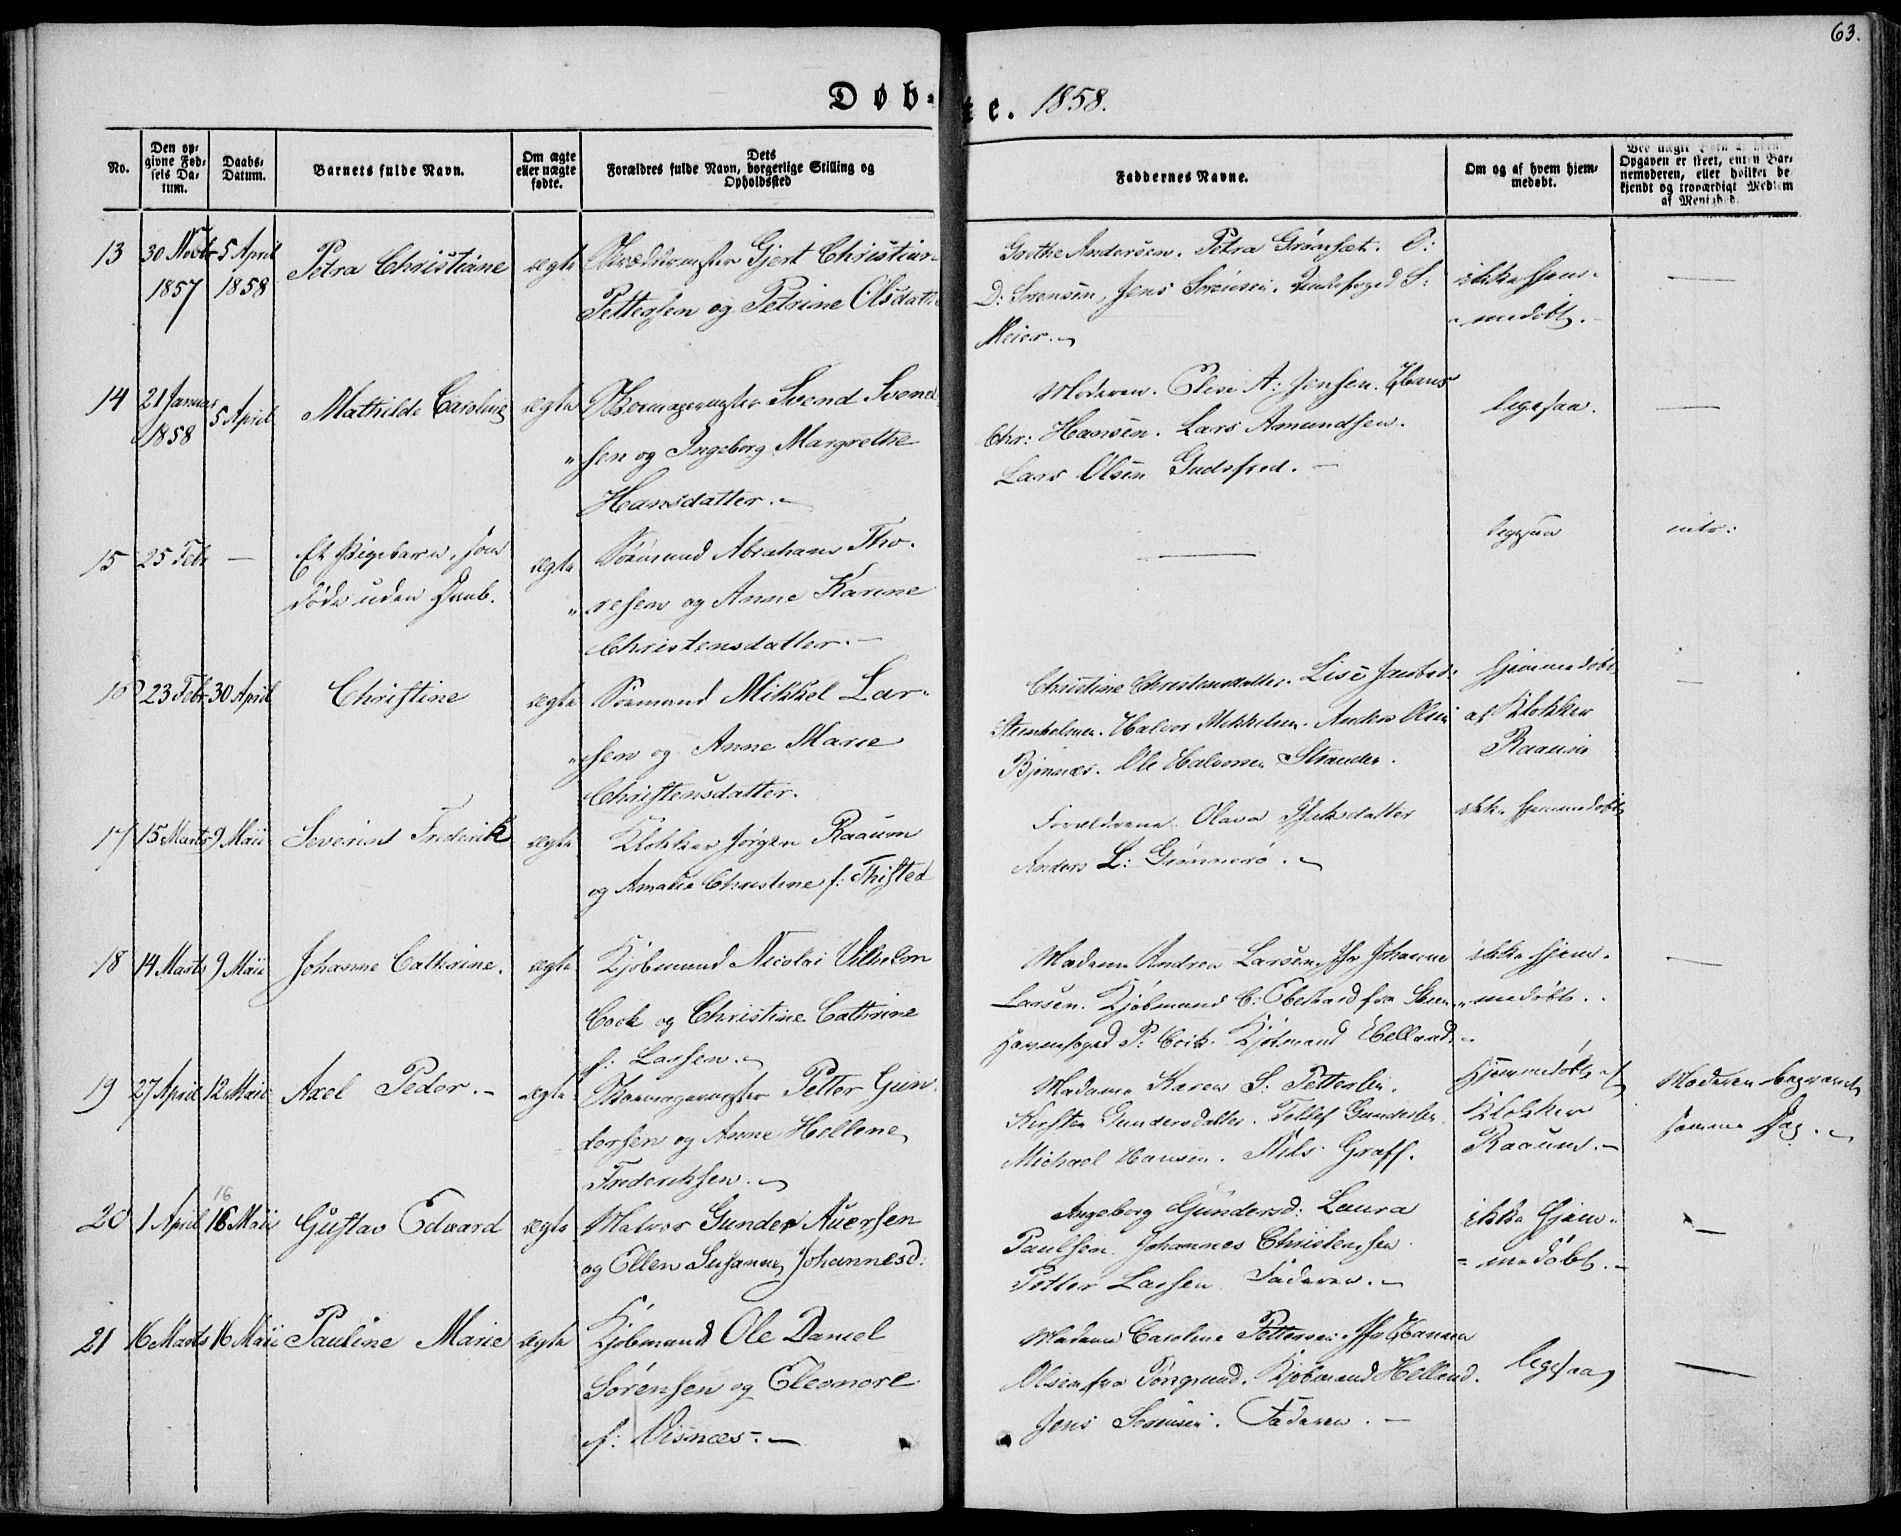 63.
Døbte. 1858.
No.
Den opgivne Fødsels Datum.
Daabs-Datum.
Barnets fulde Navn.
Om ægte eller uægte fødte.
Dets Forældres fulde Navn, borgerlige Stilling og Opholdssted
Faddernes Navne.
Om og af hvem hjemmedøbt.
Opgaven er skeet, enten Barnemoderen, eller hvilket bekjendt og troværdigt Medlem af Menighed.
13 30 Novbr 5 April Petra Christiane ægte Gjert Christian
1857 1858 Pettersen og Petrine Olsdatter
Grethe Andersen. Petra Grønsæt. O:
D: Sørensen, Jens Sørensen. S:
Meier.
ikke hjem-
medøbt.
14 21 Januar 5 April Mathilde Caroline ægte Skomagermester Svend Svend-
1858 sen og Ingeborg Margrethe
Hansdatter.
Moderen. Elise A: Jensen. Hans
Chr: Hansen. Lars Amundsen.
Lars Olsen Gudsfred.
ligesaa.
15 25 Febr — Et Pigebarn, som ægte Sømand Abraham Tho-
døde uden Daab. resen og Anne Karine
Christensdatter.
ligesaa
intr:
16 23 Febr 30 April Christine ægte Sømand Mikkel Lar-
sen og Anne Marie
Christensdatter.
Christine Christensdatter. Lise Jensd:
Steenholmen. Halvor Mikkelsen. Anders Olsen
Bjønnæs. Ole Halvorsen Stranden.
hjemmedøbt
af Klokker
Raaum
17 15 Marts 9 Maii Severin Frederik ægte Klokker Jørgen Raaum
og Amalia Christine f: Thisted
Forældrene. Olava datter
Anders L: Grønnerø.
ikke hjemmedøbt
18 14 Marts 9 Maii Johanne Cathrine. ægte Kjøbmand Nicolai Vilhelm
Cock og Christine Cathrine
f: Larsen.
Madame Andrea Larsen, Jfr Johanne
Larsen. Kjøbmand C: fra
Havnefoged P: Cock. Kjøbmand Helland.
ikke hjem-
medøbt.
19 27 April 12 Maii Axel Peder. ægte Skomagermester Petter Gun-
dersen og Anne Hellene
Frederiksen.
Madame Karen S: Pettersen.
Kirsten Gundersdatter. Tellef Gundersen.
Michael Hansen. Nils Graff.
Hjemmedøbt af
Klokker
Raaum.
Moderen begravet
samme Dag.
16
20 1 April 16 Maii Gustav Edvard ægte Halvor Gunder Auersen
og Ellen Susanne Johannesd:
Ingeborg Gundersd: Laura
Paulsen. Johannes Christensen.
Petter Larsen Faderen.
ikke hjem-
medøbt.
21 16 Marts 16 Maii Pauline Marie ægte Kjøbmand Ole Daniel
Sørensen og Eleonore
f: Visnæs.
Madame Caroline Pettersen. Jfr Hanna
Olsen fra Kjøbmand Helland.
Jens Sørensen. Faderen.
ligesaa